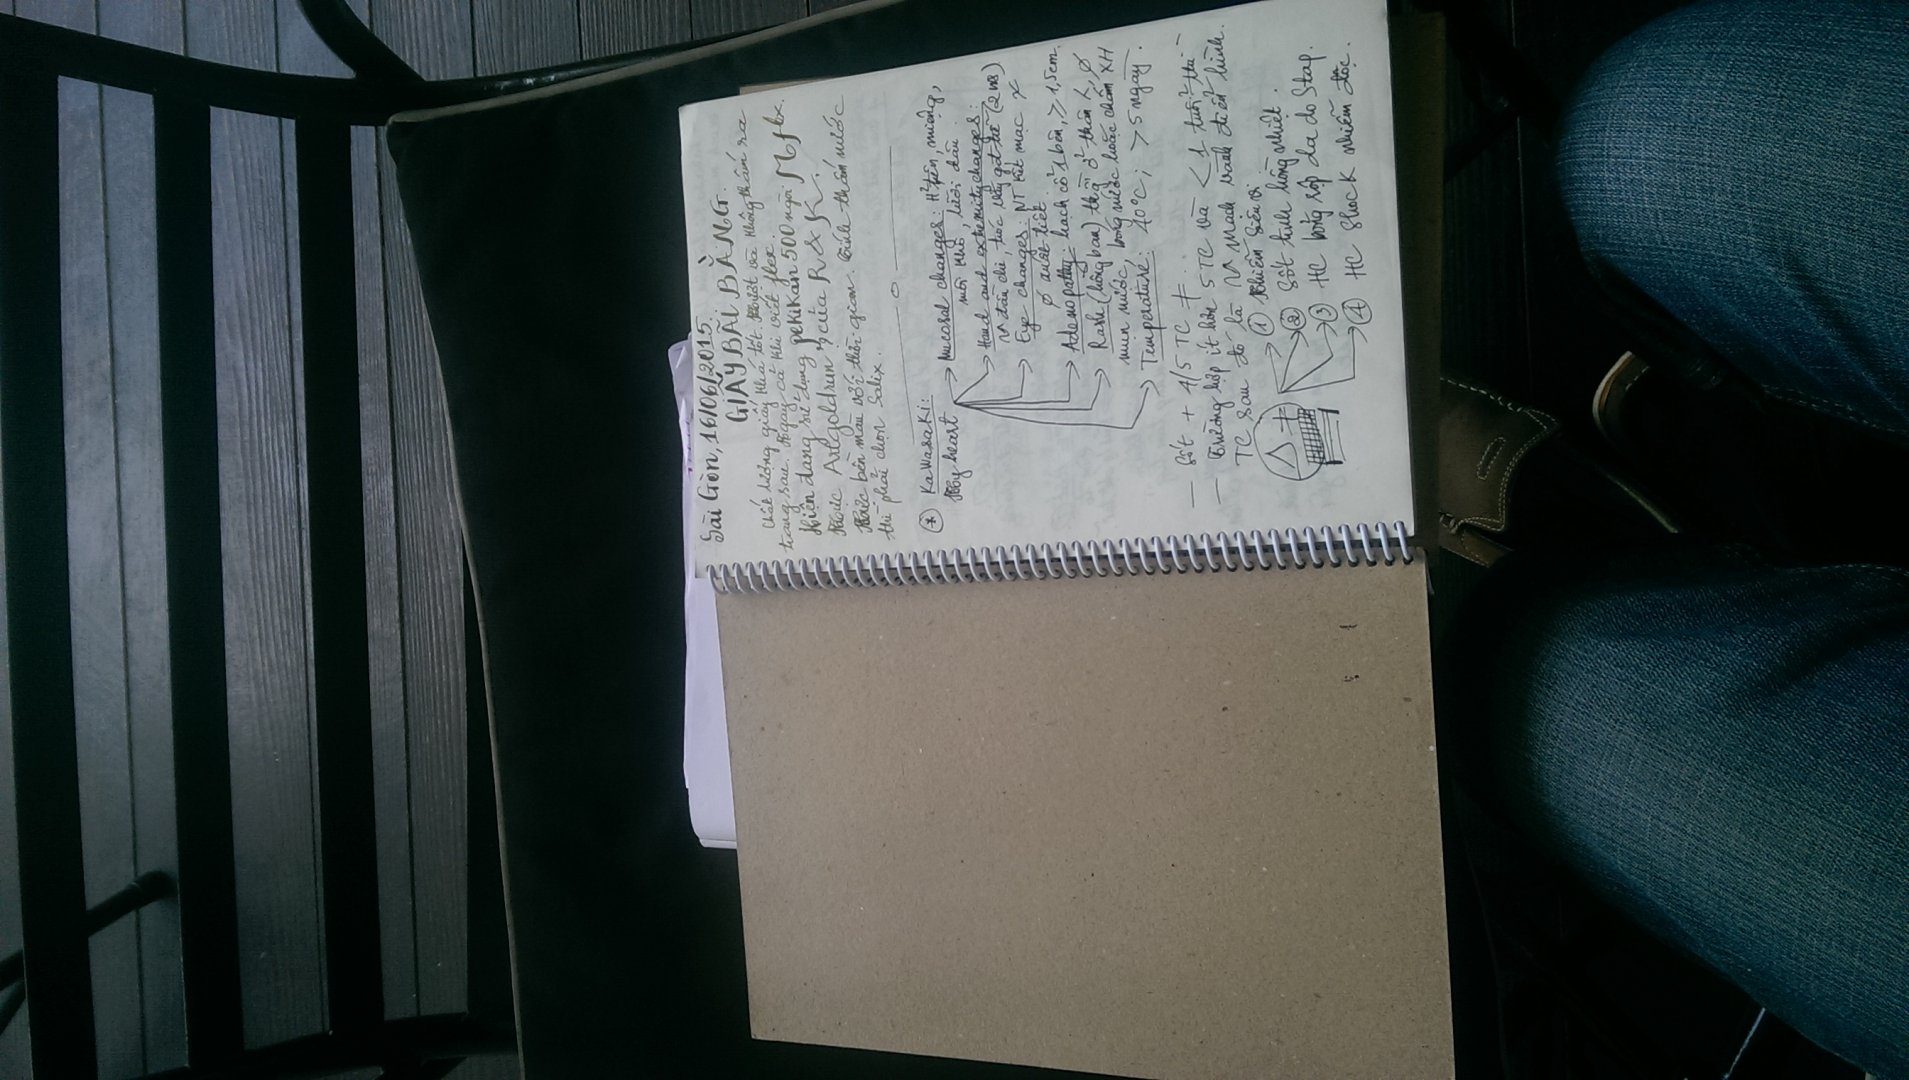 Sài Gòn, 16/06/2015.
GIẤY BÃI BẰNG.
Chất lượng giấy khá tốt. Mượt và không thấm ra
trang sau. Ngay cả khi viết flex.
Hiện đang sử dụng pelikan 500 ngòi M flex.
Mực Artgoldrun, của R & K.
Mực bền màu với thời gian. Tính thấm nước
thì phải chọn Salix.
* Kawasaki:
My heart
→ Mucosal changes: Hồng, miệng,
môi khô, lưỡi dâu
→ Hand and extremity changes:
đầu chi, tróc vảy gót
→ Eye changes: NT kết mạc
∅ xuất tiết
→ Adenopathy: hạch cổ 1 bên, ≥ 1,5cm.
→ Rash (hồng ban) thg ở thân, ∅
mụn nước, bóng nước hoặc chấm XH
→ Temperature: 40°C; > 5 ngày.
— Sốt + 4/5 TC ≠...
— Trường hợp ít hơn 5TC và < 1 tuổi thì
TC sau đó là mạch vành điển hình.
Δ ≠
① Nhiễm siêu vi
② Sốt tinh hồng nhiệt.
③ HC bỏng rộp da do Stap.
④ HC Shock nhiễm độc.